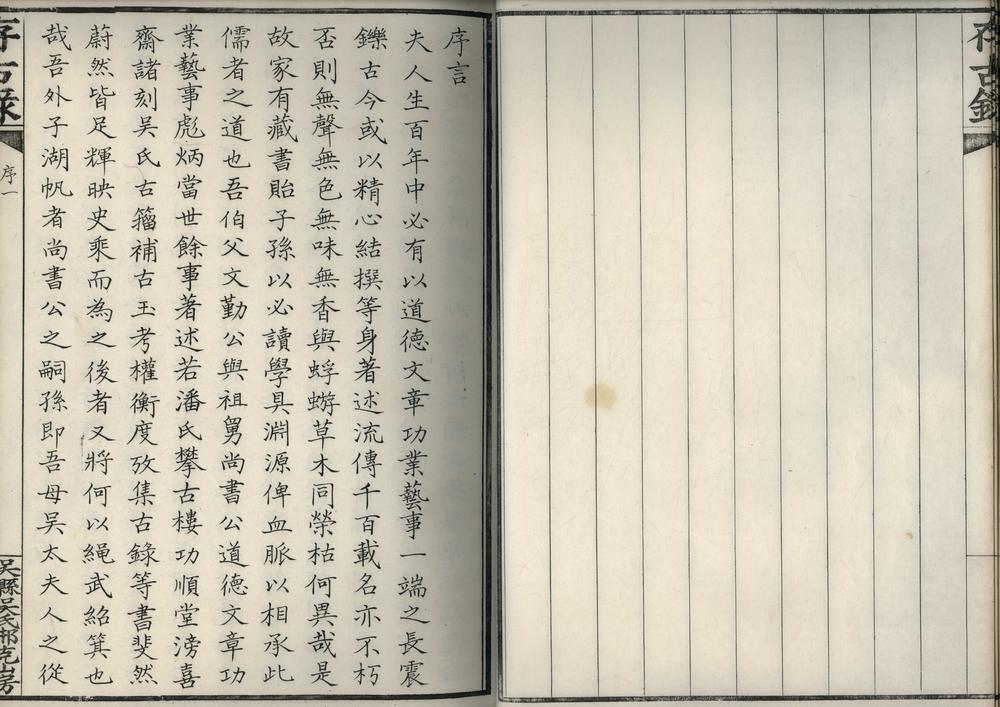 存古錄
序言
夫人生百年中必有以道德文章功業藝事一端之長震
鑠古今或以精心結撰等身著述流傳千百載名亦不朽
否則無聲無色無味無香與蜉蝣草木同榮枯何異哉是
故家有藏書貽子孫以必讀學具淵源俾血脈以相承此
儒者之道也吾伯父文勤公與祖舅尚書公道德文章功
業藝事彪炳當世餘事著述若潘氏攀古樓功順堂滂喜
齋諸刻吳氏古籀補古玉考權衡度攷集古錄等書斐然
蔚然皆足輝映史乘而為之後者又將何以繩武紹箕也
哉吾外子湖帆者尚書公之嗣孫即吾母吳太夫人之從
存古錄
序一
吳縣吳氏邢克山房